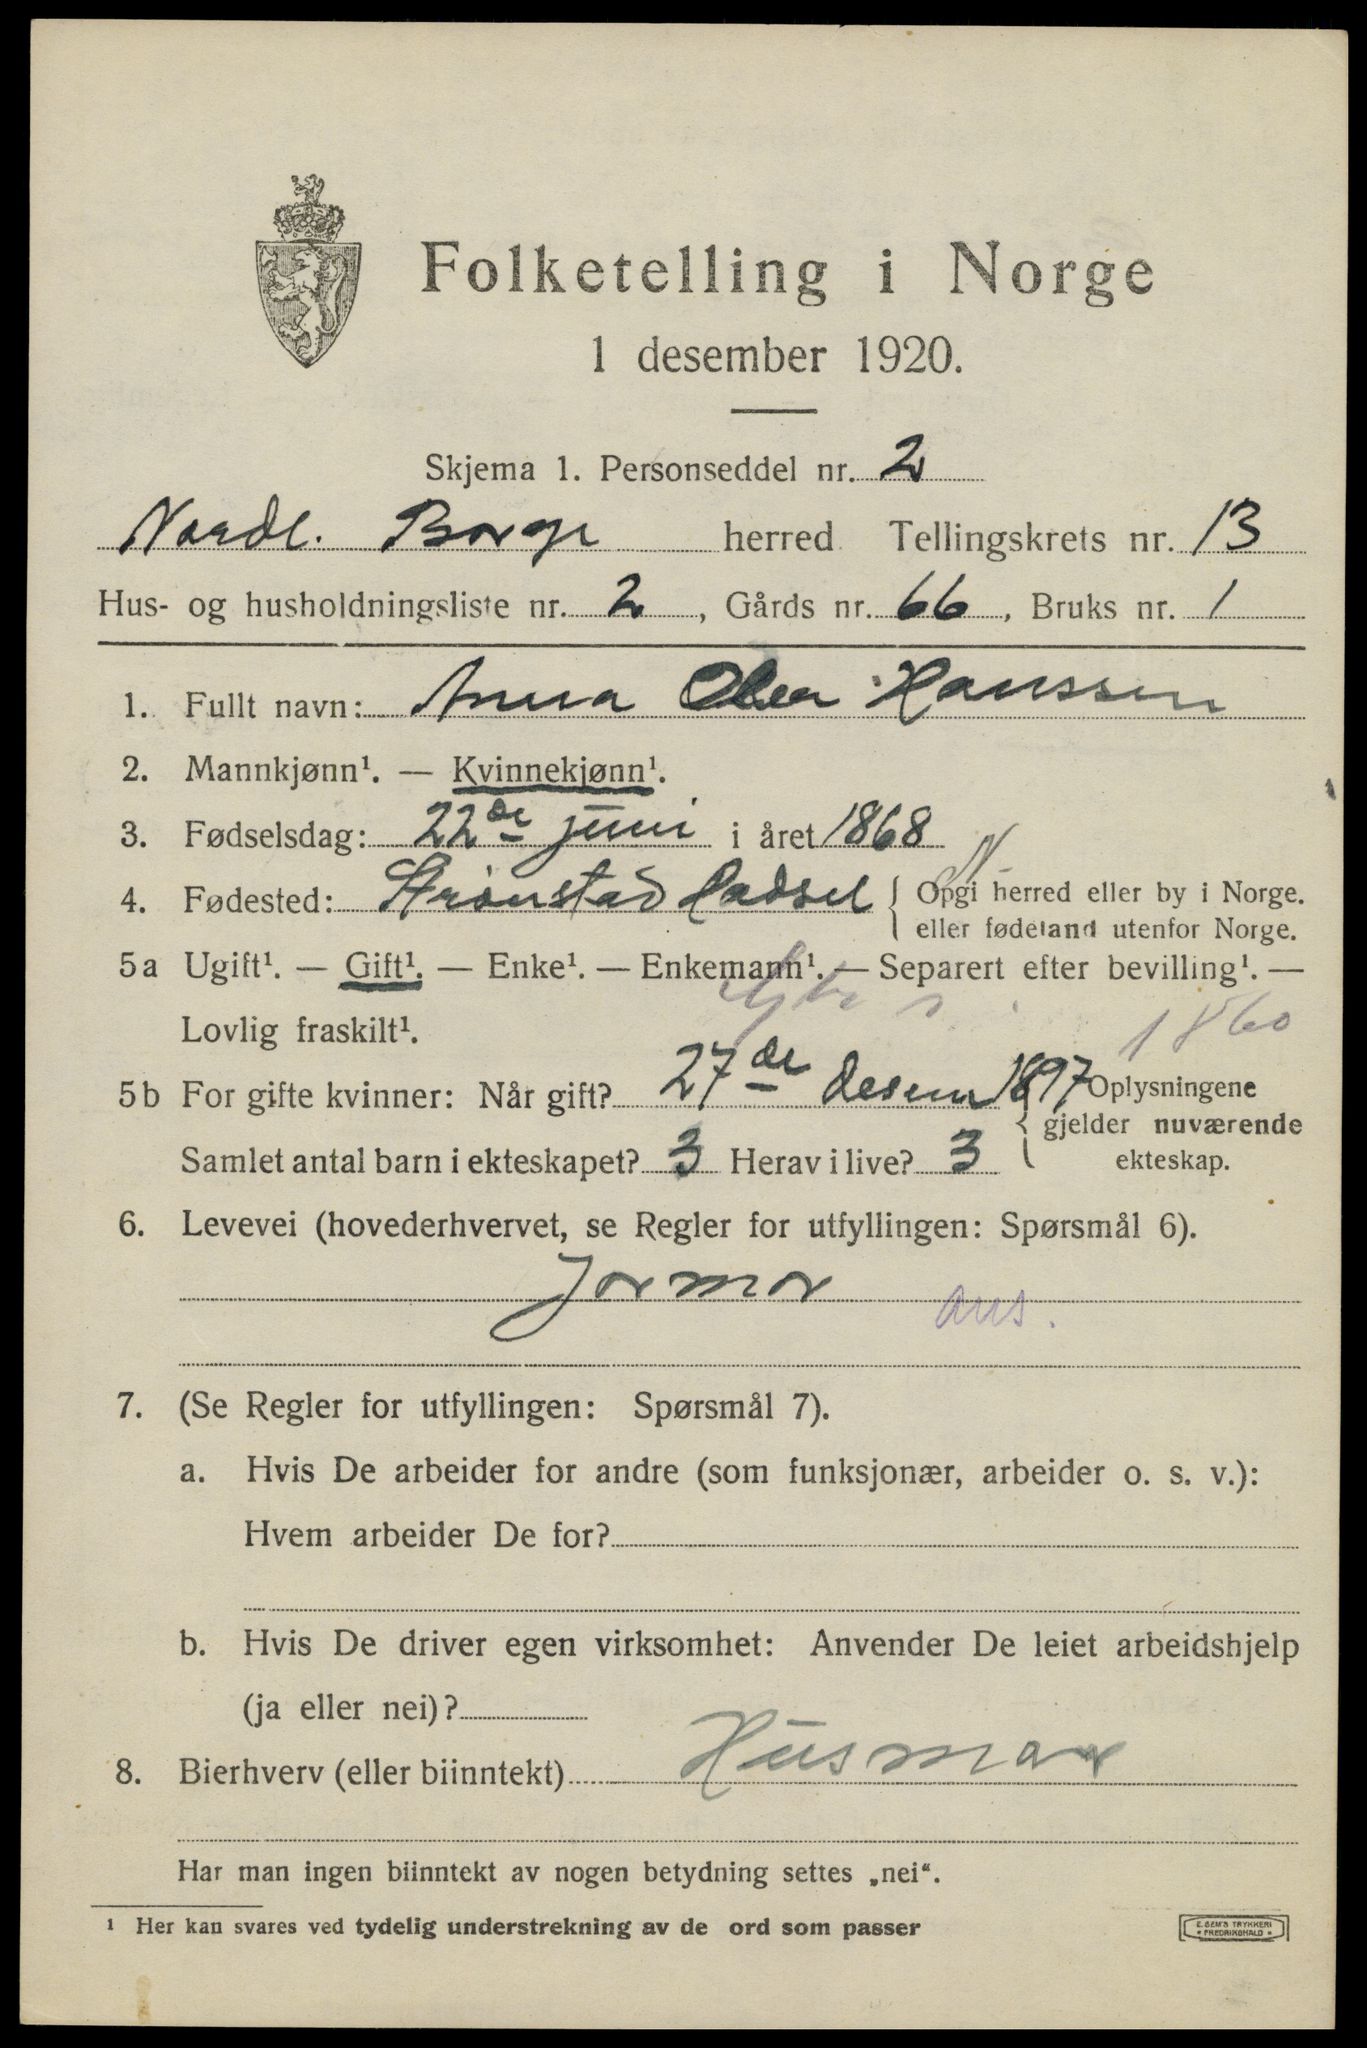 Folketelling i Norge
1 desember 1920.
Skjema 1. Personseddel nr. 2
Nordl. Borge herred Tellingskrets nr. 13
Hus- og husholdningsliste nr. 2, Gårds nr. 66, Bruks nr. 1
1. Fullt navn: Anna Olea Hanssen
2. Mannkjønn¹. — Kvinnekjønn¹.
3. Fødselsdag: 22de juni i året 1868
4. Fødested: Strønstad Hadsel { Opgi herred eller by i Norge.
eller fødeland utenfor Norge.
N
5a Ugift¹. — Gift¹. — Enke¹. — Enkemann¹. — Separert efter bevilling¹. —
Lovlig fraskilt¹.
1860
5b For gifte kvinner: Når gift? 27de desem 1897 { Oplysningene
gjelder nuværende
Samlet antal barn i ekteskapet? 3 Herav i live? 3 ekteskap.
6. Levevei (hovederhvervet, se Regler for utfyllingen: Spørsmål 6).
Jormor
7. (Se Regler for utfyllingen: Spørsmål 7).
a. Hvis De arbeider for andre (som funksjonær, arbeider o. s. v.):
Hvem arbeider De for?
b. Hvis De driver egen virksomhet: Anvender De leiet arbeidshjelp
(ja eller nei)?
8. Bierhverv (eller biinntekt) Husmor
Har man ingen biinntekt av nogen betydning settes „nei“.
¹ Her kan svares ved tydelig understrekning av de ord som passer
E. SEM'S TRYKKERI
* FREDRIKSHALD *